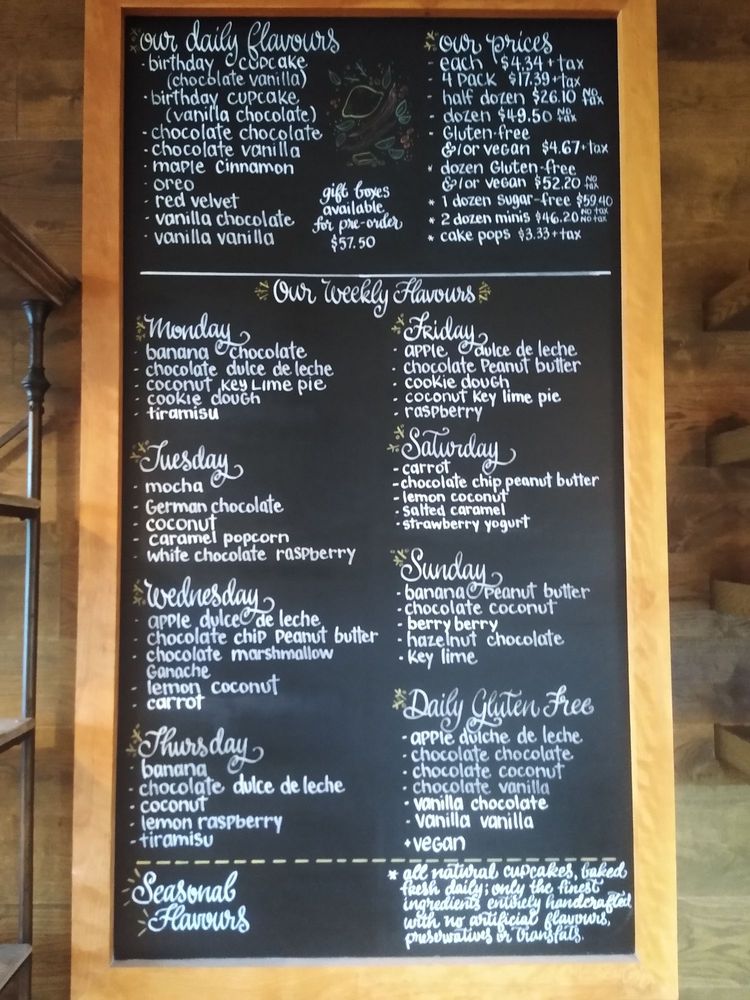 our daily flavours
- birthday cupcake
(chocolate vanilla)
- birthday cupcake
(vanilla chocolate)
- chocolate chocolate
- chocolate vanilla
- maple cinnamon
- oreo
- red velvet
- vanilla chocolate
- vanilla vanilla
gift boxes
available
for pre-order
$57.50
our prices
- each $4.34 + tax
- 4 pack $17.39 + tax
- half dozen $26.10 NO tax
- dozen $49.50 NO tax
- Gluten-free
&/or vegan $4.67 + tax
* dozen Gluten-free
&/or vegan $52.20 NO tax
* 1 dozen sugar-free $59.40 NO tax
* 2 dozen minis $46.20 NO tax
* cake pops $3.33 + tax
Our Weekly Flavours
Monday
- banana chocolate
- chocolate dulce de leche
- coconut key Lime pie
- cookie dough
- tiramisu
Tuesday
- mocha
- German chocolate
- coconut
- caramel popcorn
- white chocolate raspberry
Wednesday
- apple dulce de leche
- chocolate chip Peanut butter
- chocolate marshmallow
Ganache
- lemon coconut
- carrot
Thursday
- banana
- chocolate dulce de leche
- coconut
- lemon raspberry
- tiramisu
Friday
- apple dulce de leche
- chocolate Peanut butter
- cookie dough
- coconut key lime pie
- raspberry
Saturday
- carrot
- chocolate chip peanut butter
- lemon coconut
- salted caramel
- strawberry yogurt
Sunday
- banana Peanut butter
- chocolate coconut
- berry berry
- hazelnut chocolate
- key lime
Daily Gluten Free
- apple dulche de leche
- chocolate chocolate
- chocolate coconut
- chocolate vanilla
- vanilla chocolate
- vanilla vanilla
+ vegan
Seasonal
Flavours
* all natural cupcakes, baked
fresh daily; only the finest
ingredients entirely handcrafted
with no artificial flavours,
preservatives or transfats.